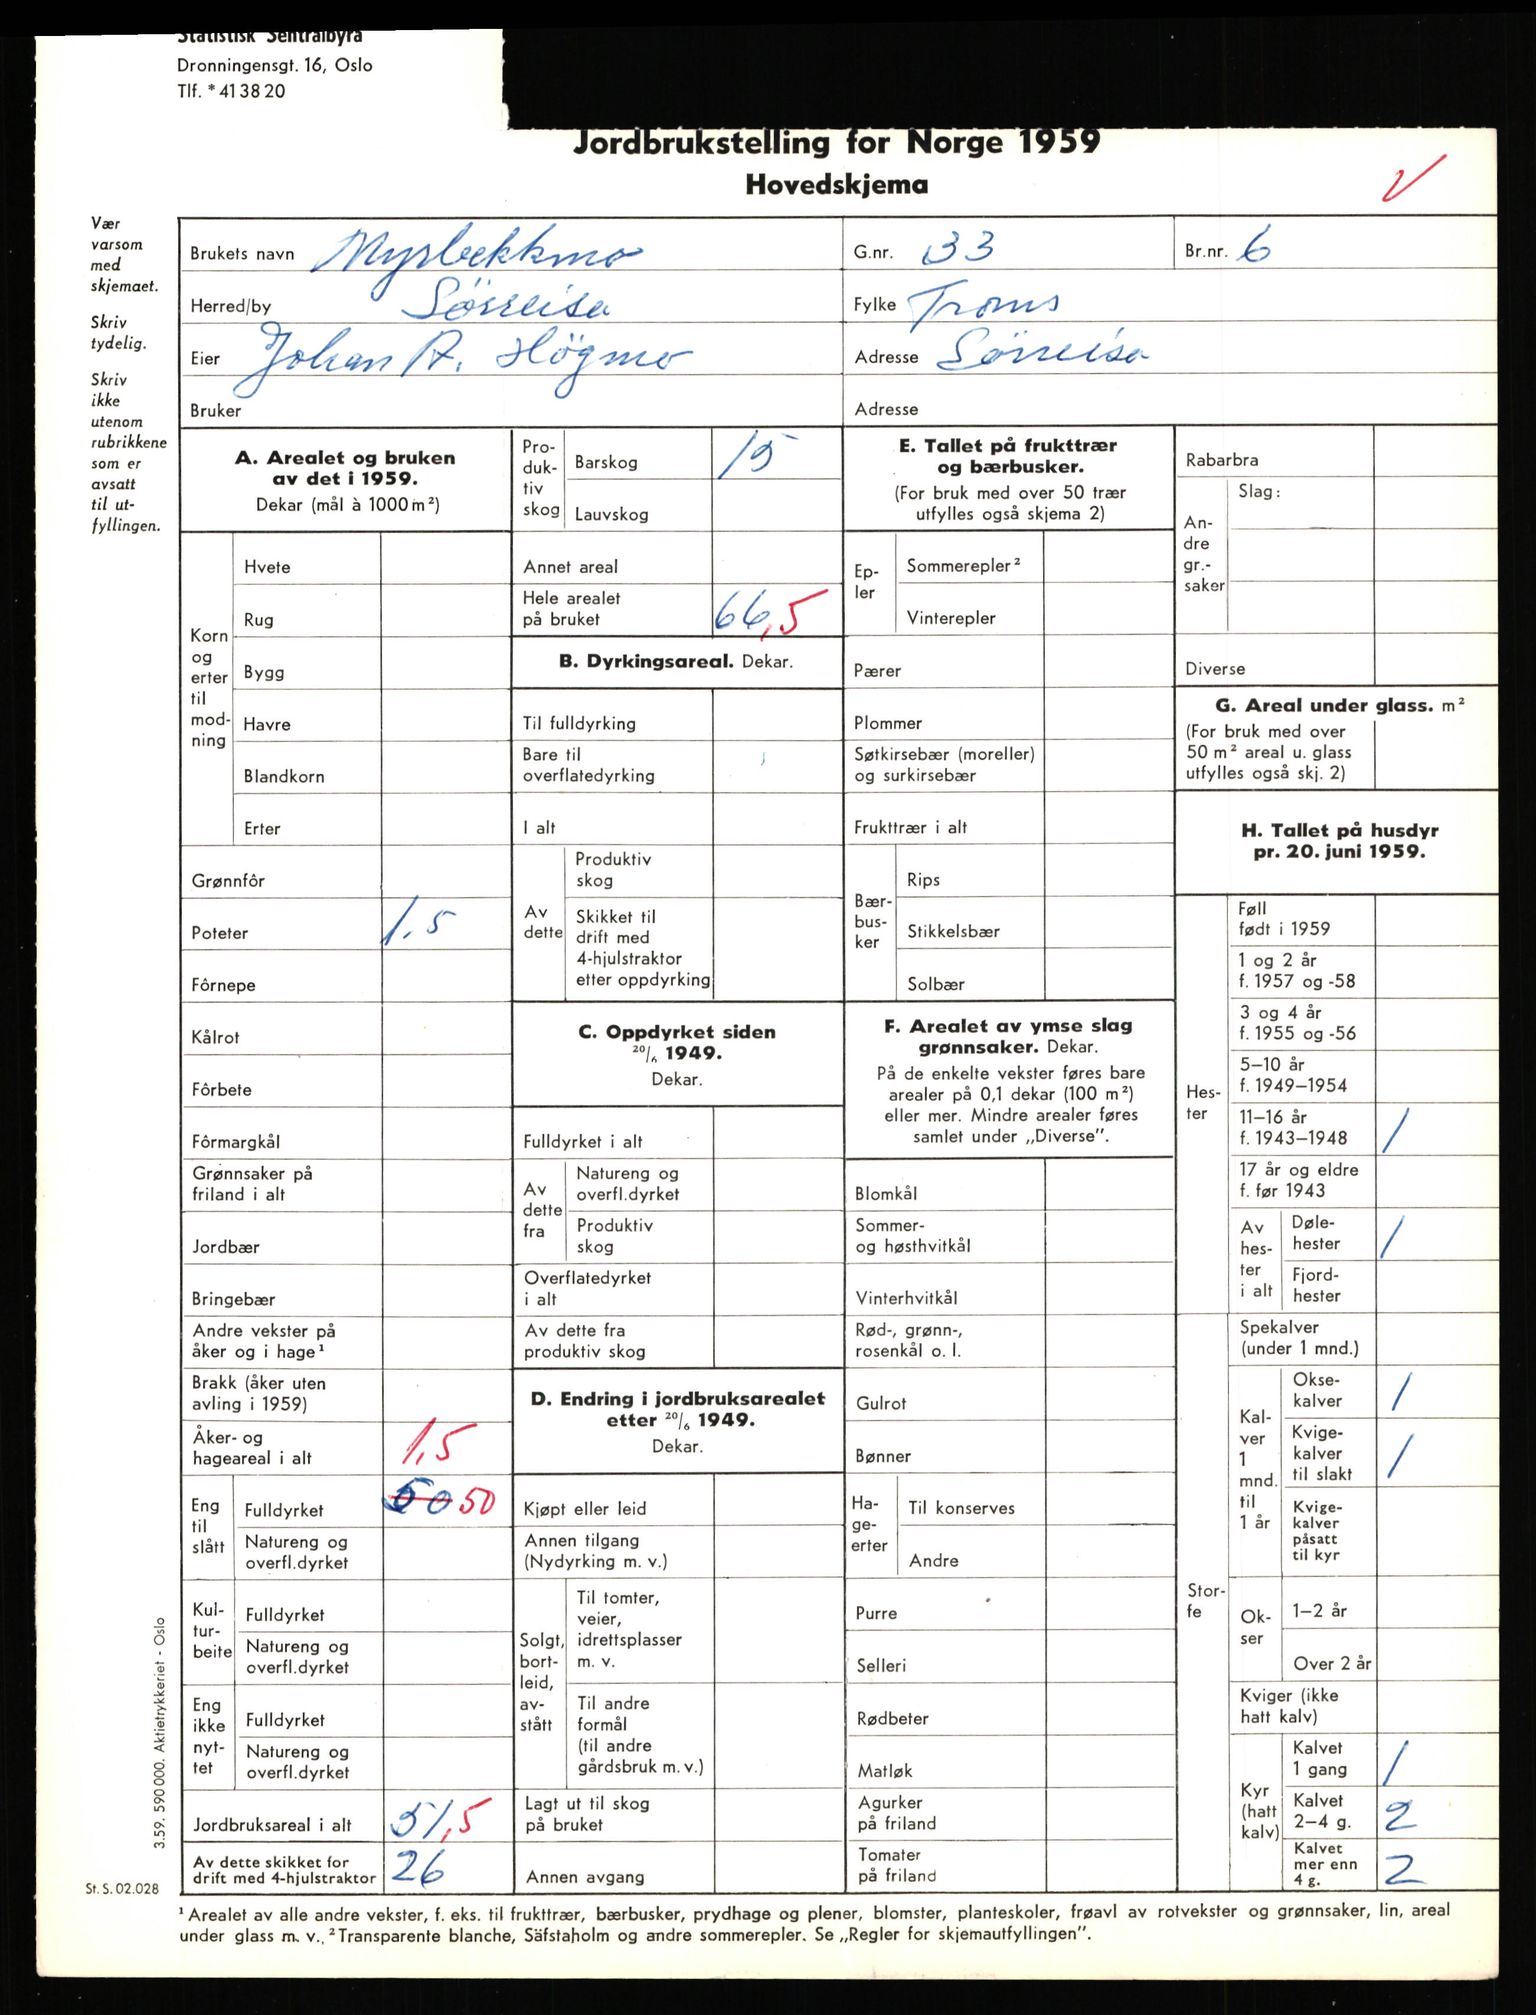 Statistisk Sentralbyrå
Dronningensgt. 16, Oslo
Tlf. * 41 38 20
Jordbrukstelling for Norge 1959
Hovedskjema
V
Vær
varsom
med
skjemaet.
Skriv
tydelig.
Skriv
ikke
utenom
rubrikkene
som er
avsatt
til ut-
fyllingen.
Brukets navn Myrbekkmo G.nr. 33 Br.nr. 6
Herred/by Sörreisa Fylke Troms
Eier Johan A. Högmo Adresse Sörreisa
Bruker Adresse
A. Arealet og bruken
av det i 1959.
Dekar (mål à 1000 m²)
Korn
og
erter
til
mod-
ning
Hvete
Rug
Bygg
Havre
Blandkorn
Erter
Grønnfôr
Poteter 1.5
Fôrnepe
Kålrot
Fôrbete
Fôrmargkål
Grønnsaker på
friland i alt
Jordbær
Bringebær
Andre vekster på
åker og i hage¹
Brakk (åker uten
avling i 1959)
Åker- og
hageareal i alt 1,5
Eng
til
slått
Fulldyrket 50 50
Natureng og
overfl.dyrket
Kul-
tur-
beite
Fulldyrket
Natureng og
overfl.dyrket
Eng
ikke
nyt-
tet
Fulldyrket
Natureng og
overfl.dyrket
Jordbruksareal i alt 51,5
Av dette skikket for
drift med 4-hjulstraktor 26
Pro-
duk-
tiv
skog
Barskog 15
Lauvskog
Annet areal
Hele arealet
på bruket 66,5
B. Dyrkingsareal. Dekar.
Til fulldyrking
Bare til
overflatedyrking
I alt
Av
dette
Produktiv
skog
Skikket til
drift med
4-hjulstraktor
etter oppdyrking
C. Oppdyrket siden
20/6 1949.
Dekar.
Fulldyrket i alt
Av
dette
fra
Natureng og
overfl.dyrket
Produktiv
skog
Overflatedyrket
i alt
Av dette fra
produktiv skog
D. Endring i jordbruksarealet
etter 20/6 1949.
Dekar.
Kjøpt eller leid
Annen tilgang
(Nydyrking m. v.)
Solgt,
bort-
leid,
av-
stått
Til tomter,
veier,
idrettsplasser
m. v.
Til andre
formål
(til andre
gårdsbruk m. v.)
Lagt ut til skog
på bruket
Annen avgang
E. Tallet på frukttrær
og bærbusker.
(For bruk med over 50 trær
utfylles også skjema 2)
Ep-
ler
Sommerepler²
Vinterepler
Pærer
Plommer
Søtkirsebær (moreller)
og surkirsebær
Frukttrær i alt
Bær-
bus-
ker
Rips
Stikkelsbær
Solbær
F. Arealet av ymse slag
grønnsaker. Dekar.
På de enkelte vekster føres bare
arealer på 0,1 dekar (100 m²)
eller mer. Mindre arealer føres
samlet under „Diverse”.
Blomkål
Sommer-
og høsthvitkål
Vinterhvitkål
Rød-, grønn-,
rosenkål o. l.
Gulrot
Bønner
Ha-
ge-
erter
Til konserves
Andre
Purre
Selleri
Rødbeter
Matløk
Agurker
på friland
Tomater
på friland
Rabarbra
An-
dre
gr.-
saker
Slag:
Diverse
G. Areal under glass. m²
(For bruk med over
50 m² areal u. glass
utfylles også skj. 2)
H. Tallet på husdyr
pr. 20. juni 1959.
Hes-
ter
Føll
født i 1959
1 og 2 år
f. 1957 og -58
3 og 4 år
f. 1955 og -56
5–10 år
f. 1949–1954
11–16 år
f. 1943–1948 1
17 år og eldre
f. før 1943
Av
hes-
ter
i alt
Døle-
hester 1
Fjord-
hester
Stor-
fe
Spekalver
(under 1 mnd.)
Kal-
ver
1
mnd.
til
1 år
Okse-
kalver 1
Kvige-
kalver
til slakt 1
Kvige-
kalver
påsatt
til kyr
Ok-
ser
1–2 år
Over 2 år
Kviger (ikke
hatt kalv)
Kyr
(hatt
kalv)
Kalvet
1 gang 1
Kalvet
2–4 g. 2
Kalvet
mer enn
4 g. 2
3.59. 590 000. Aktietrykkeriet - Oslo
St. S. 02.028
¹ Arealet av alle andre vekster, f. eks. til frukttrær, bærbusker, prydhage og plener, blomster, planteskoler, frøavl av rotvekster og grønnsaker, lin, areal
under glass m. v., ² Transparente blanche, Säfstaholm og andre sommerepler. Se „Regler for skjemautfyllingen”.